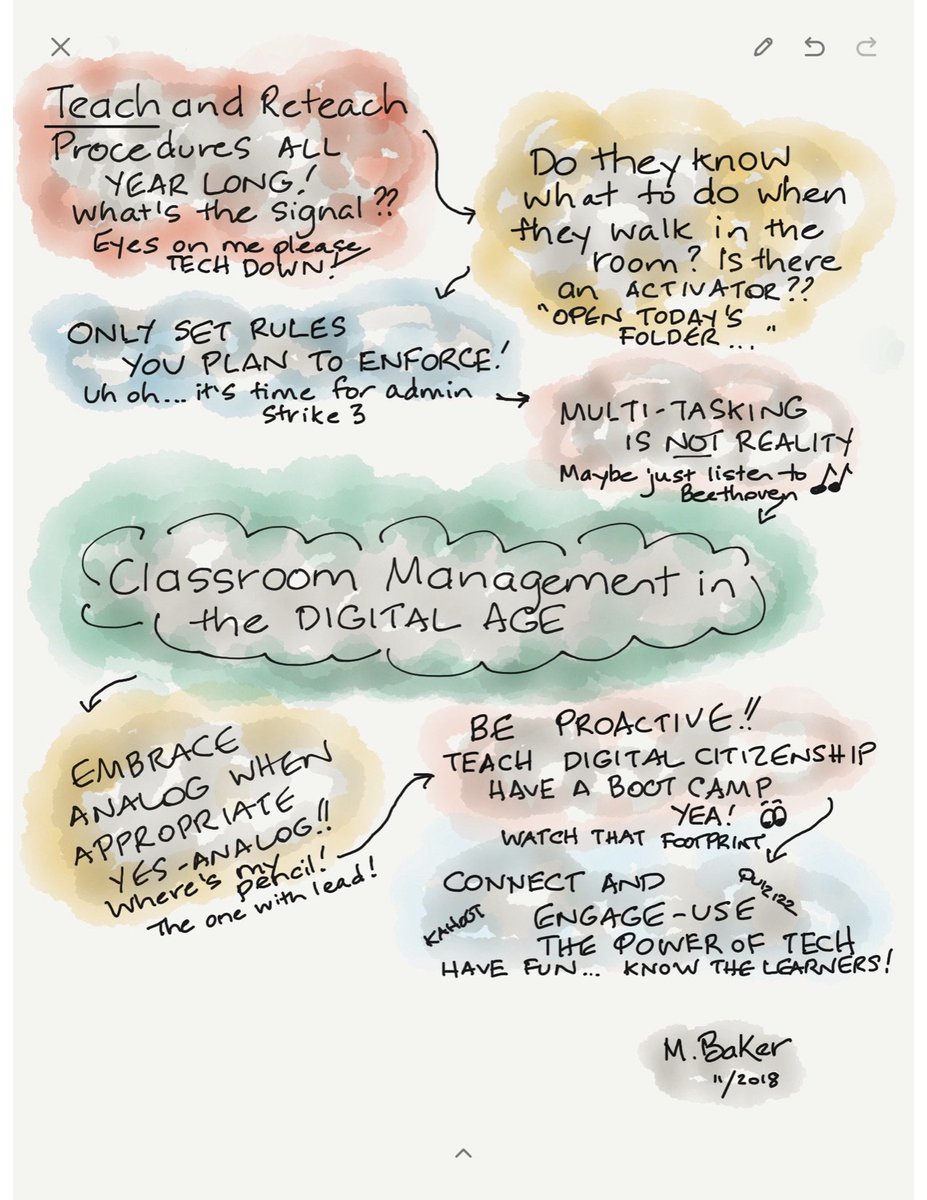 Teach and Reteach
Procedures ALL
YEAR LONG!
What's the signal??
Eyes on me please
TECH DOWN!
Do they know
what to do when
they walk in the
room? Is there
an ACTIVATOR??
"OPEN TODAY'S
FOLDER..."
ONLY SET RULES
YOU PLAN TO ENFORCE!
Uh oh... it's time for admin
Strike 3
MULTI-TASKING
IS NOT REALITY
Maybe just listen to
Beethoven
Classroom Management in
the DIGITAL AGE
EMBRACE
ANALOG WHEN
APPROPRIATE
YES-ANALOG!!
Where's my
pencil!
The one with lead!
BE PROACTIVE!!
TEACH DIGITAL CITIZENSHIP
HAVE A BOOT CAMP
YEA!
WATCH THAT FOOTPRINT
CONNECT AND
QUIZIZZ
KAHOOT
ENGAGE-USE
THE POWER OF TECH
HAVE FUN... KNOW THE LEARNERS!
M. Baker
11/2018